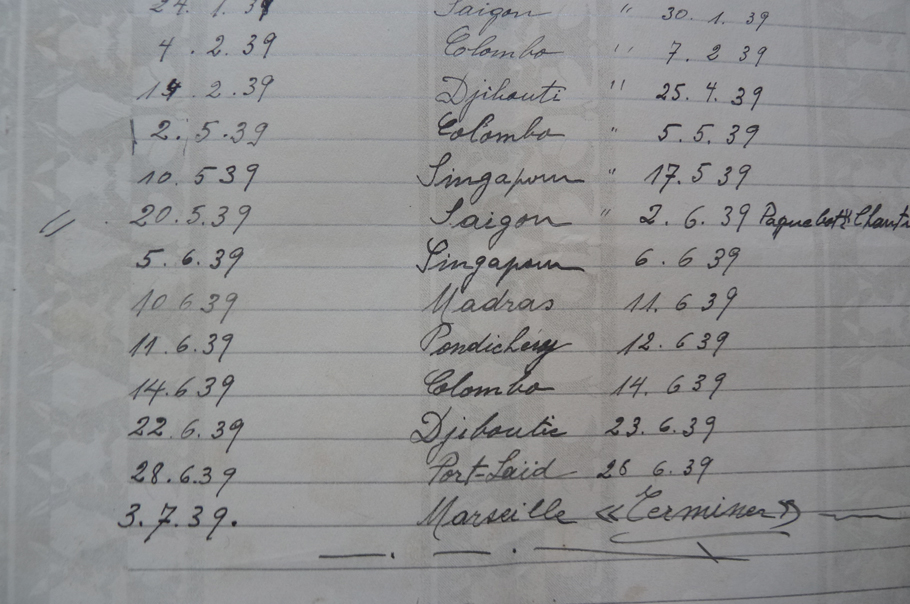 24. 1. 39 Saigon " 30. 1. 39
4. 2. 39 Colombo " 7. 2 39
14. 2. 39 Djibouti " 25. 4. 39
2. 5. 39 Colombo " 5. 5. 39
10. 5 39 Singapour " 17. 5 39
" 20. 5. 39 Saigon " 2. 6. 39 Paquebot "
5. 6. 39 Singapour 6. 6 39
10 6 39 Madras 11. 6 39
11. 6. 39 Pondichéry 12. 6 39
14. 6 39 Colombo 14. 6 39
22. 6. 39 Djiboutie 23. 6. 39
28. 6. 39 Port-Saïd 28 6. 39
3. 7. 39. Marseille « Terminer »